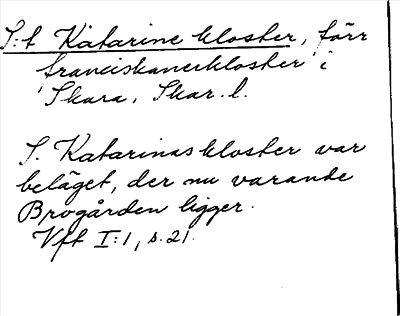 S:t Katarine kloster, förr
franciskanerkloster i
Skara, Skar. l.
S. Katarinas kloster var
beläget, der nu varande
Brogården ligger.
Vft I:1, s. 21.